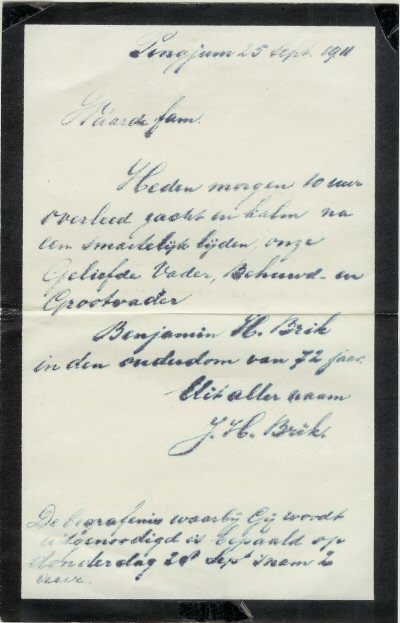 Pingjum 25 sept. 1911
Waarde fam.
Heden morgen 10 uur
overleed zacht en kalm na
een smartelijk lijden, onze
Geliefde Vader, Behuwd- en
Grootvader
Benjamin H. Brik
in den ouderdom van 72 jaar.
Uit aller naam
J. H. Brik.
De begrafenis waarbij Gij wordt
uitgenoodigd is bepaald op
donderdag 28 Sept. 's nam 2
uur.